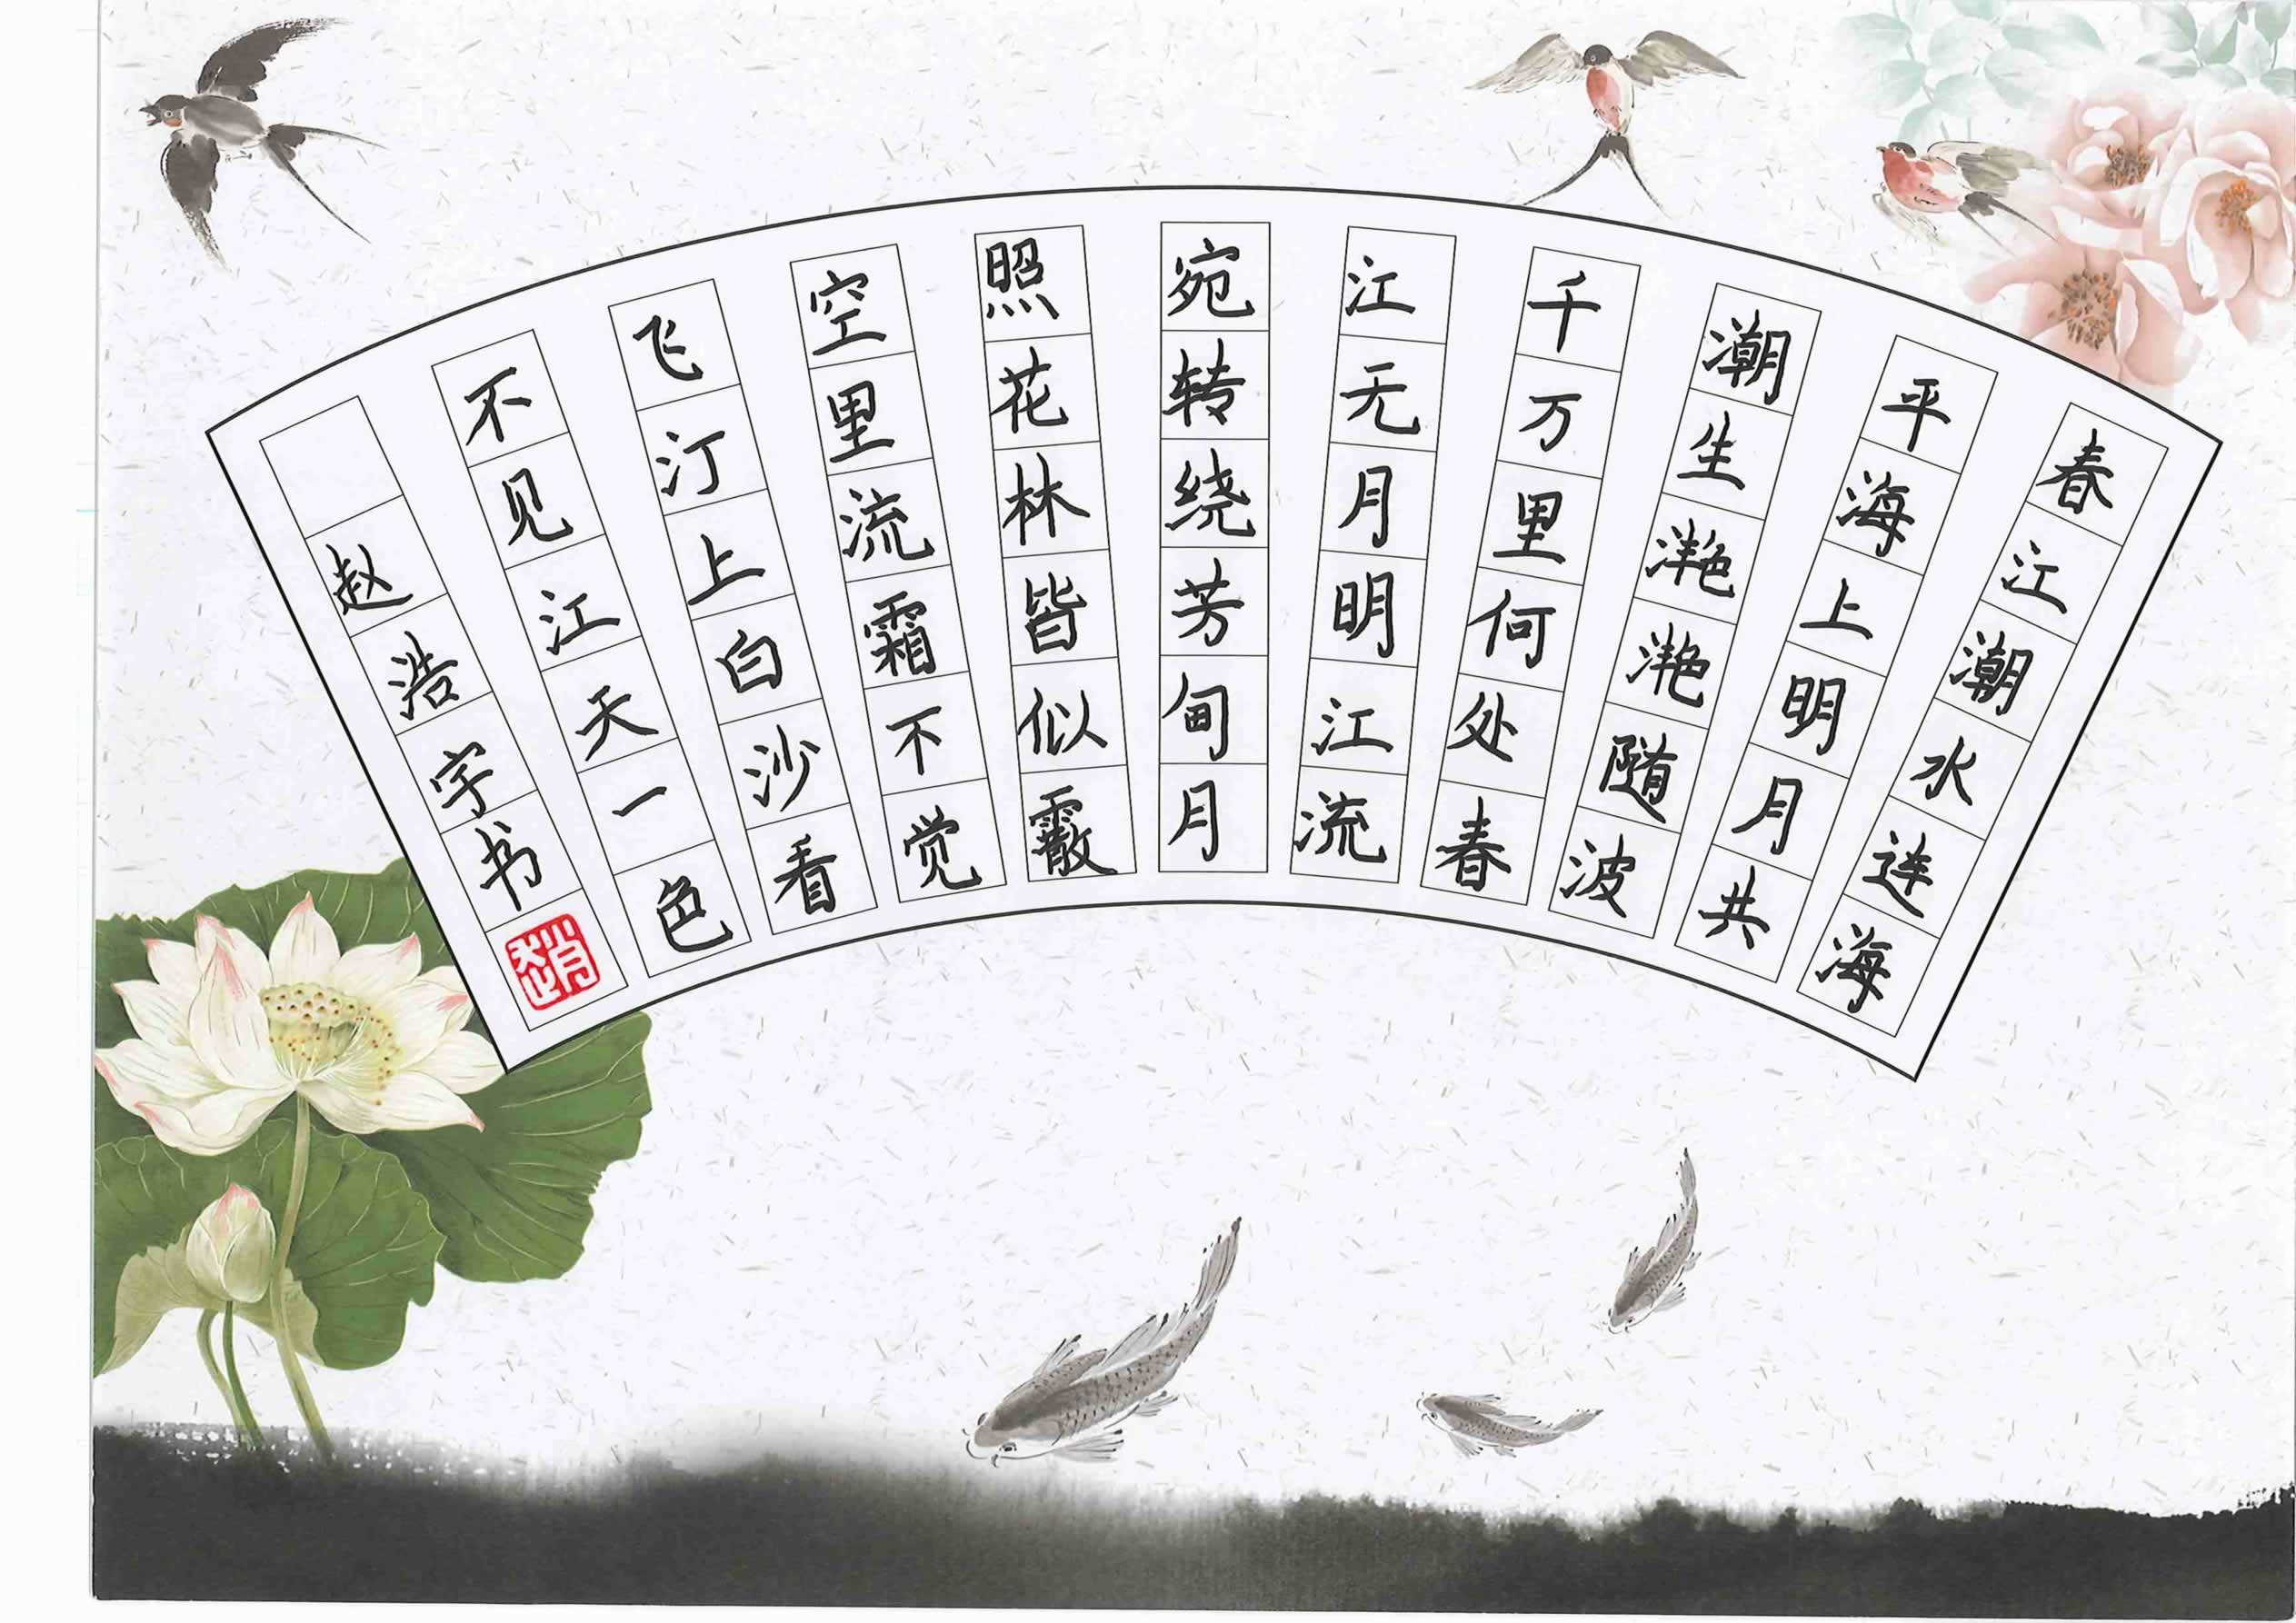 春江潮水连海
平海上明月共
潮生滟滟随波
千万里何处春
江无月明江流
宛转绕芳甸月
照花林皆似霰
空里流霜不觉
飞汀上白沙看
不见江天一色
赵浩宇书
趙